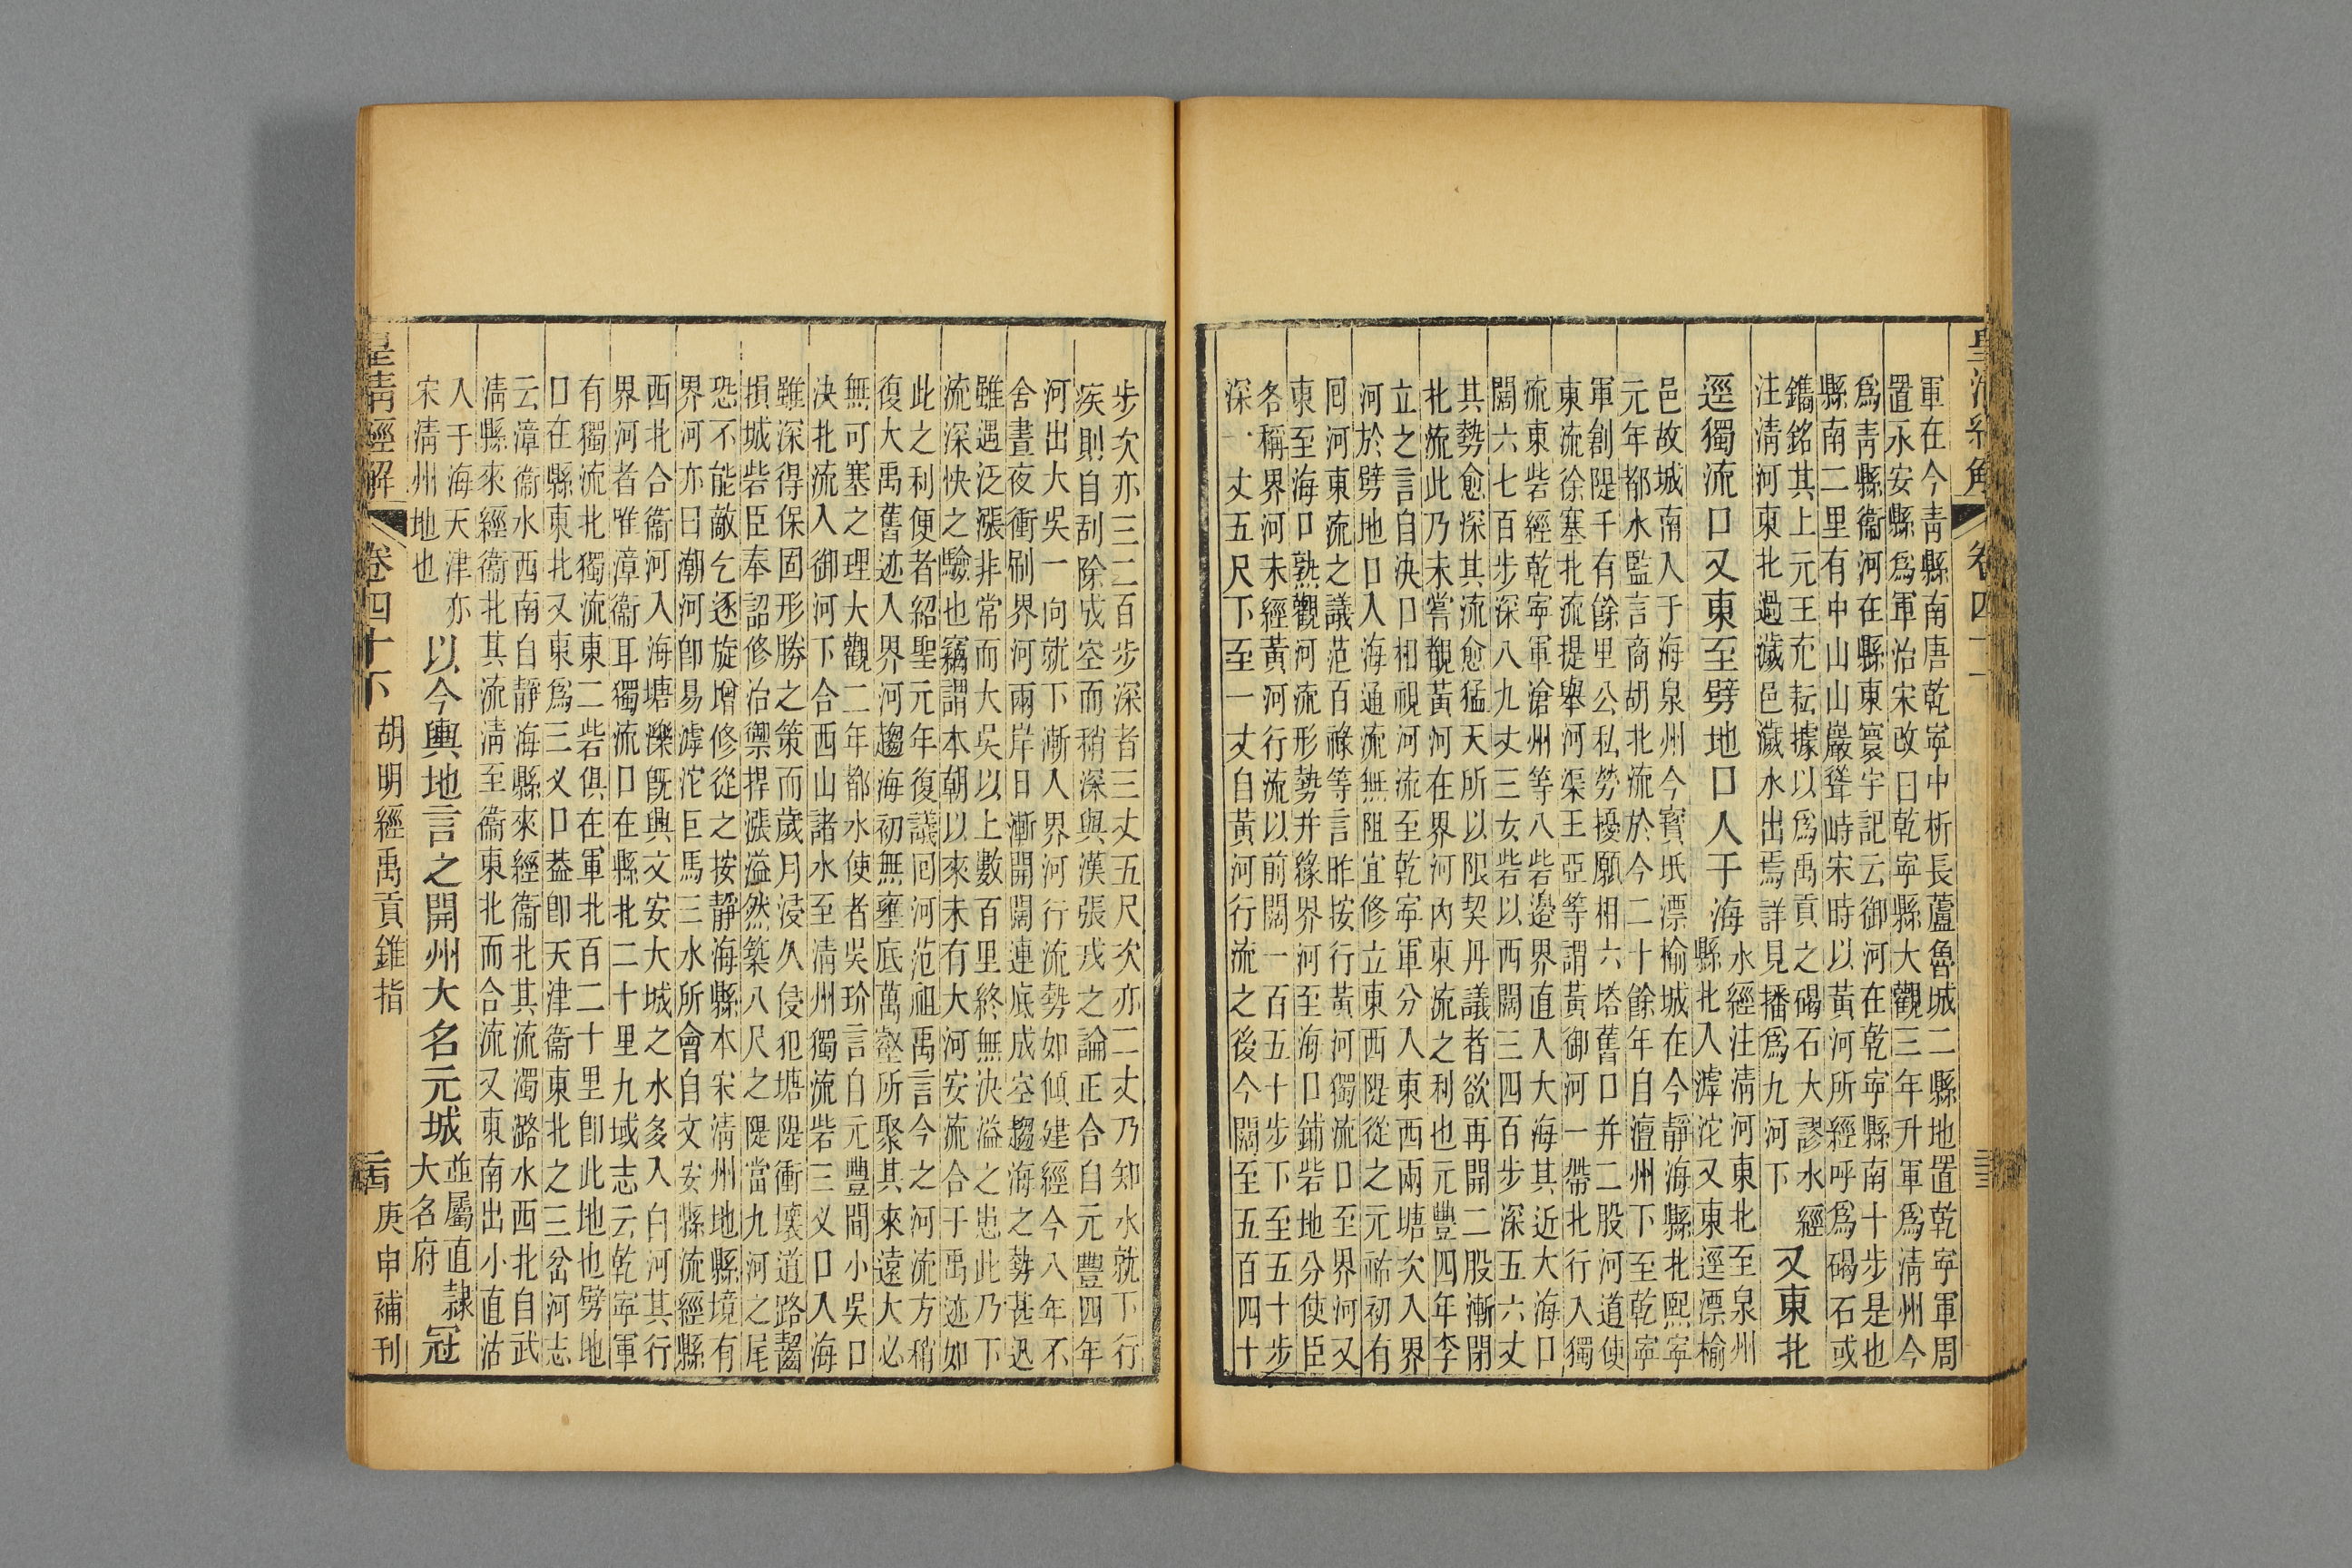 皇清經解　卷四十下
軍在今青縣南唐乾寧中析長蘆魯城二縣地置乾寧軍周
置永安縣爲軍治宋改曰乾寧縣大觀三年升軍爲淸州今
爲青縣衞河在縣東寰宇記云御河在乾寧縣南十步是也
縣南二里有中山山巖聳峙宋時以黃河所經呼爲碣石或
鐫銘其上元王充耘據以爲禹貢之碣石大謬水經
注淸河東北過濊邑濊水出焉詳見播爲九河下
又東北
逕獨流口又東至劈地口入于海
水經注淸河東北至泉州
縣北入滹沱又東逕漂榆
邑故城南入于海泉州今寳坻漂榆城在今靜海縣北熙寧
元年都水監言商胡北流於今二十餘年自澶州下至乾寧
軍創隄千有餘里公私勞擾願相六塔舊口幷二股河道使
東流徐塞北流提舉河渠王亞等謂黃御河一帶北行入獨
流東砦經乾寧軍滄州等八砦邊界直入大海其近大海口
闊六七百步深八九丈三女砦以西闊三四百步深五六丈
其勢愈深其流愈猛天所以限契丹議者欲再開二股漸閉
北流此乃未嘗觀黃河在界河內東流之利也元豐四年李
立之言自決口相視河流至乾寧軍分入東西兩塘次入界
河於劈地口入海通流無阻宜修立東西隄從之元祐初有
囘河東流之議范百祿等言昨按行黃河獨流口至界河又
東至海口熟觀河流形勢幷緣界河至海口鋪砦地分使臣
各稱界河未經黃河行流以前闊一百五十步下至五十步
深一丈五尺下至一丈自黃河行流之後今闊至五百四十
步次亦三二百步深者三丈五尺次亦二丈乃知水就下行
疾則自刮除成空而稍深與漢張戎之論正合自元豐四年
河出大吳一向就下漸入界河行流勢如傾建經今八年不
舍晝夜衝刷界河兩岸日漸開闊連底成空趨海之勢甚迅
雖遇泛漲非常而大吳以上數百里終無決溢之患此乃下
流深快之驗也竊謂本朝以來未有大河安流合于禹迹如
此之利便者紹聖元年復議囘河范祖禹言今之河流方稍
復大禹舊迹入界河趨海初無壅底萬壑所聚其來遠大必
無可塞之理大觀二年都水使者吳玠言自元豐間小吳口
決北流入御河下合西山諸水至淸州獨流砦三叉口入海
雖深得保固形勝之策而歲月浸久侵犯塘隄衝壞道路齧
損城砦臣奉詔修治禦捍漲溢然築八尺之隄當九河之尾
恐不能敵乞逐旋增修從之按靜海縣本宋淸州地縣境有
界河亦曰潮河卽易滹沱巨馬三水所會自文安縣流經縣
西北合衞河入海塘濼旣興文安大城之水多入白河其行
界河者唯漳衞耳獨流口在縣北二十里九域志云乾寧軍
有獨流北獨流東二砦俱在軍北百二十里卽此地也劈地
口在縣東北又東爲三叉口葢卽天津衞東北之三岔河志
云漳衞水西南自靜海縣來經衞北其流濁潞水西北自武
淸縣來經衞北其流淸至衞東北而合流又東南出小直沽
入于海天津亦
宋淸州地也
以今輿地言之開州大名元城
並屬直隷
大名府
冠
皇淸經解　卷四十下　胡明經禹貢錐指　庚申補刊